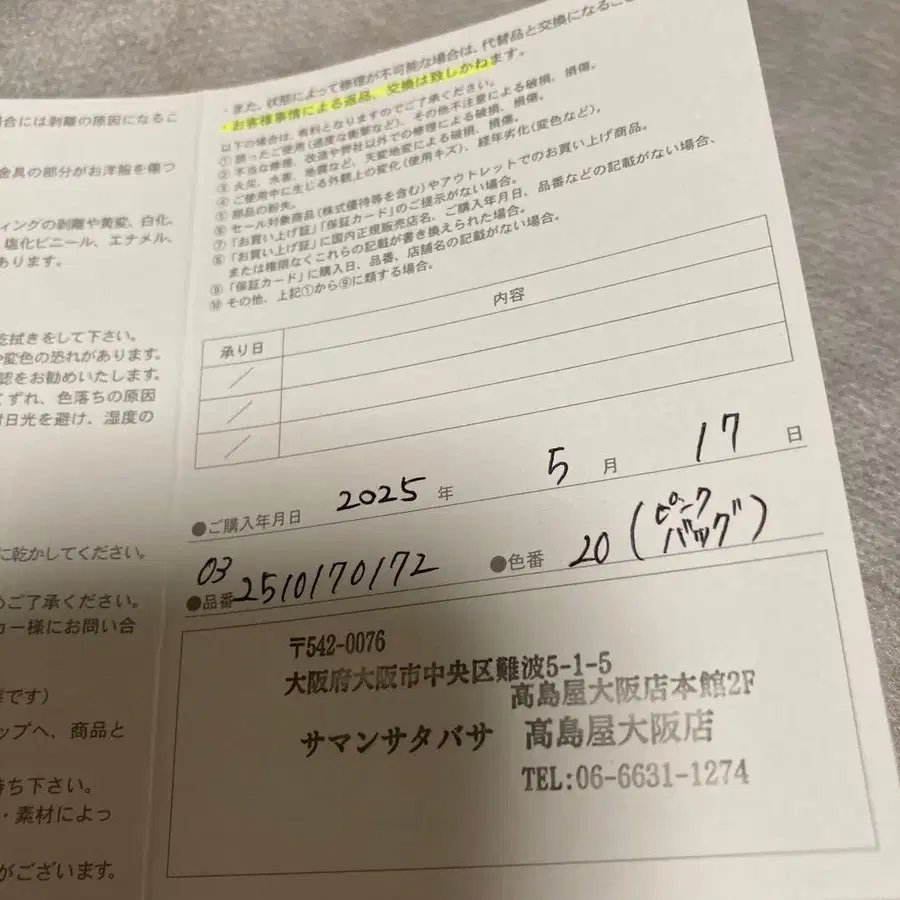 場合には剥離の原因になるこ
金具の部分がお洋服を傷つ
ィングの剥離や黄変、白化、
塩化ビニール、エナメル、
あります。
乾拭きをして下さい。
や変色の恐れがあります。
認をお勧めいたします。
くずれ、色落ちの原因
日光を避け、湿度の
に乾かしてください。
めご了承ください。
カー様にお問い合
です)
ップへ、商品と
待ち下さい。
・素材によっ
がございます。
・また、状態によって修復が不可能な場合は、代替品と交換になるこ
・お客様事情による返品、交換は致しかねます。
以下の場合は、有料となりますのでご了承ください。
① 誤ったご使用(過度な衝撃など)、その他不注意による破損、損傷。
② 不当な修理、改造や弊社以外での修理による破損、損傷。
③ 火災、水害、地震など、天変地変による破損、損傷。
④ ご使用中に生じる外観上の変化(使用キズ)、経年劣化(変色など)。
⑤ 部品の紛失。
⑥ セール対象商品(株式優待等を含む)やアウトレットでのお買い上げ商品。
⑦ 「お買い上げ証」「保証カード」のご提示がない場合。
⑧ 「お買い上げ証」に国内正規販売店名、ご購入年月日、品番などの記載がない場合、
または権限なくこれらの記載が書き換えられた場合。
⑨ 「保証カード」に購入日、品番、店舗名の記載がない場合。
⑩ その他、上記①から⑨に類する場合。
承り日 内容
／
／
／
●ご購入年月日 2025 年 5 月 17 日
03
●品番 2510170172 ●色番 20 (ピーク バッグ)
〒542-0076
大阪府大阪市中央区難波5-1-5
髙島屋大阪店本館2F
サマンサタバサ 髙島屋大阪店
TEL:06-6631-1274